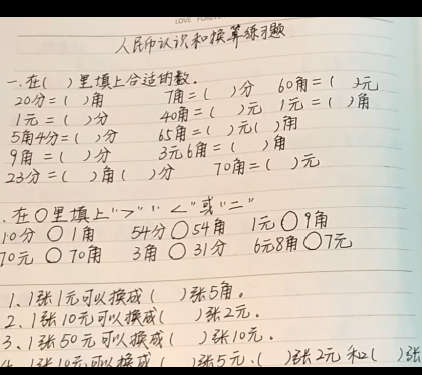 LOVE FOREVER
人民币认识和换算练习题
一.在( )里填上合适的数.
20分=( )角 7角=( )分 60角=( )元
1元=( )分 40角=( )元 1元=( )角
5角4分=( )分 65角=( )元( )角
9角=( )分 3元6角=( )角
23分=( )角( )分 70角=( )元
.在○里填上">" "<"或"="
10分○1角 54分○54角 1元○9角
70元○70角 3角○31分 6元8角○7元
1、1张1元可以换成( )张5角。
2、1张10元可以换成( )张2元。
3、1张50元可以换成( )张10元。
1张10元可以换成( )张5元、( )张2元和( )张